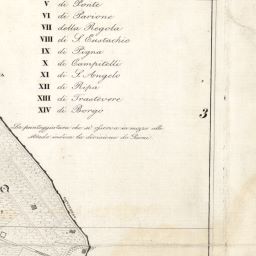 V di Ponte
VI di Parione
VII della Regola
VIII di S. Eustachio
IX di Pigna
X di Campitelli
XI di S. Angelo
XII di Ripa
XIII di Trastevere
XIV di Borgo
3
La punteggiatura che si osserva in mezzo alle
strade indica la divisione de' Rioni.